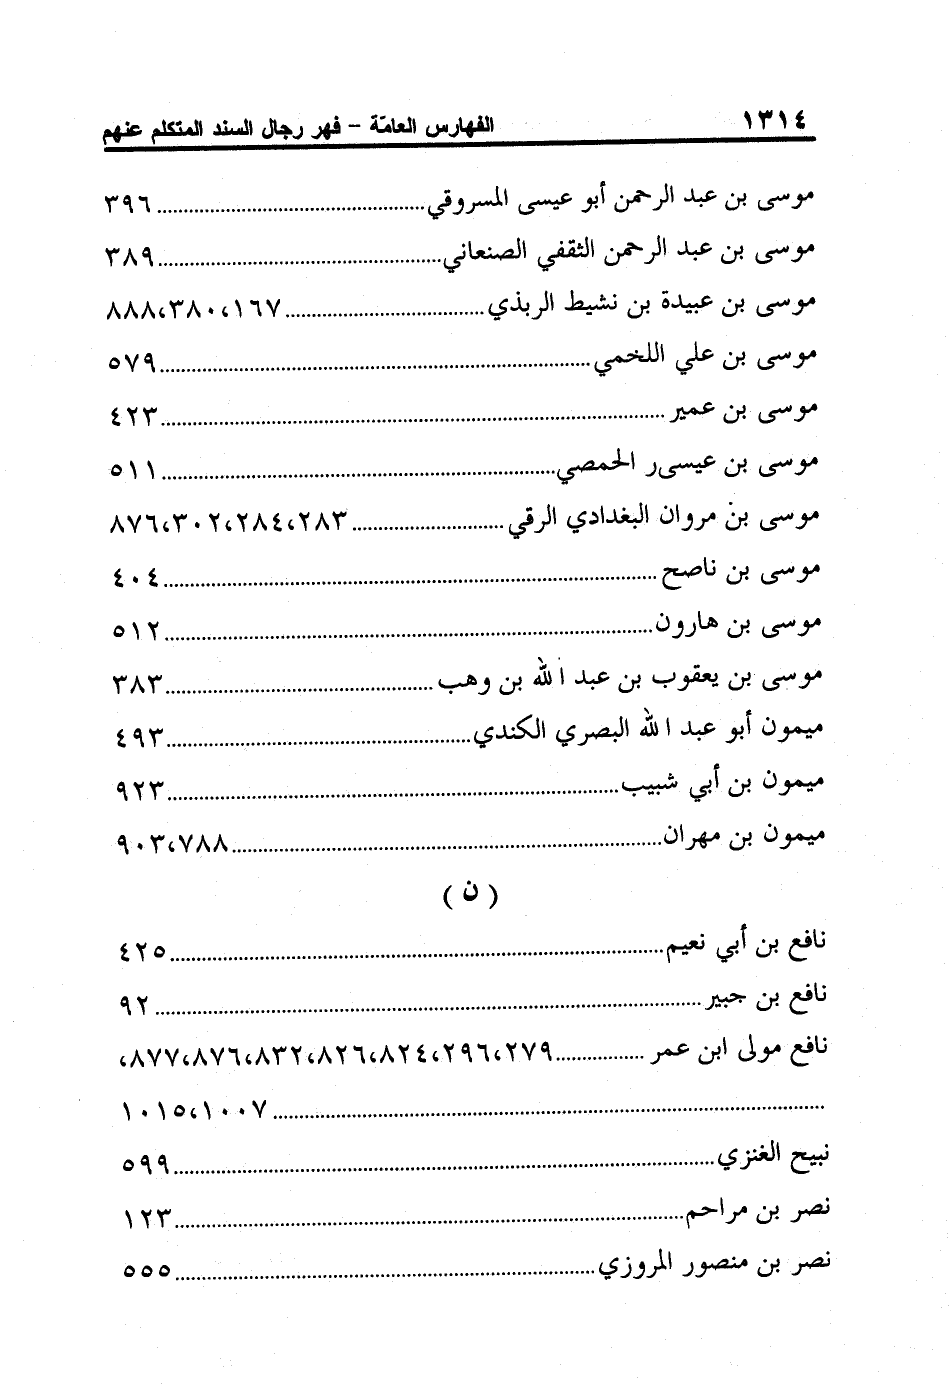 ١٣١٤ الفهارس العامّة – فهر رجال السند المتكلم عنهم
موسى بن عبد الرحمن أبو عيسى المسروقي ٣٩٦
موسى بن عبد الرحمن الثقفي الصنعاني ٣٨٩
موسى بن عبيدة بن نشيط الربذي ١٦٧، ٣٨٠، ٨٨٨
موسى بن علي اللخمي ٥٧٩
موسى بن عمير ٤٢٣
موسى بن عيسىر الحمصي ٥١١
موسى بن مروان البغدادي الرقي ٢٨٣، ٢٨٤، ٣٠٢، ٨٧٦
موسى بن ناصح ٤٠٤
موسى بن هارون ٥١٢
موسى بن يعقوب بن عبد الله بن وهب ٣٨٣
ميمون أبو عبد الله البصري الكندي ٤٩٣
ميمون بن أبي شبيب ٩٢٣
ميمون بن مهران ٧٨٨، ٩٠٣
( ن )
نافع بن أبي نعيم ٤٢٥
نافع بن جبير ٩٢
نافع مولى ابن عمر ٢٧٩، ٢٩٦، ٨٢٤، ٨٢٦، ٨٣٢، ٨٧٦، ٨٧٧،
١٠٠٧، ١٠١٥
نبيح الغنزي ٥٩٩
نصر بن مراحم ١٢٣
نصر بن منصور المروزي ٥٥٥